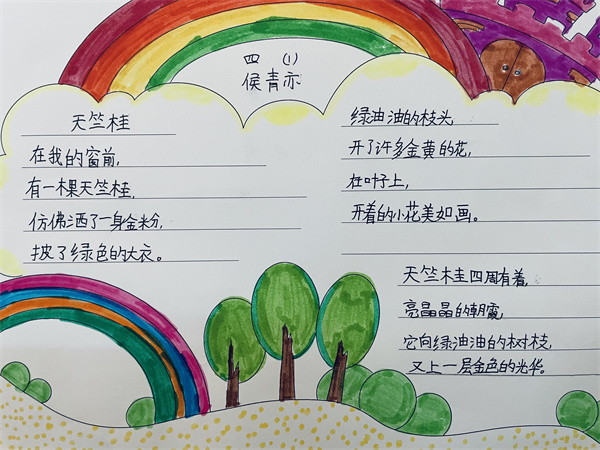 四 (1)
侯青亦
天竺桂
在我的窗前,
有一棵天竺桂,
仿佛洒了一身金粉,
披了绿色的大衣。
绿油油的枝头,
开了许多金黄的花,
在叶子上,
开着的小花美如画。
天竺桂四周有着,
亮晶晶的朝霞,
它向绿油油的树枝,
又上一层金色的光华。